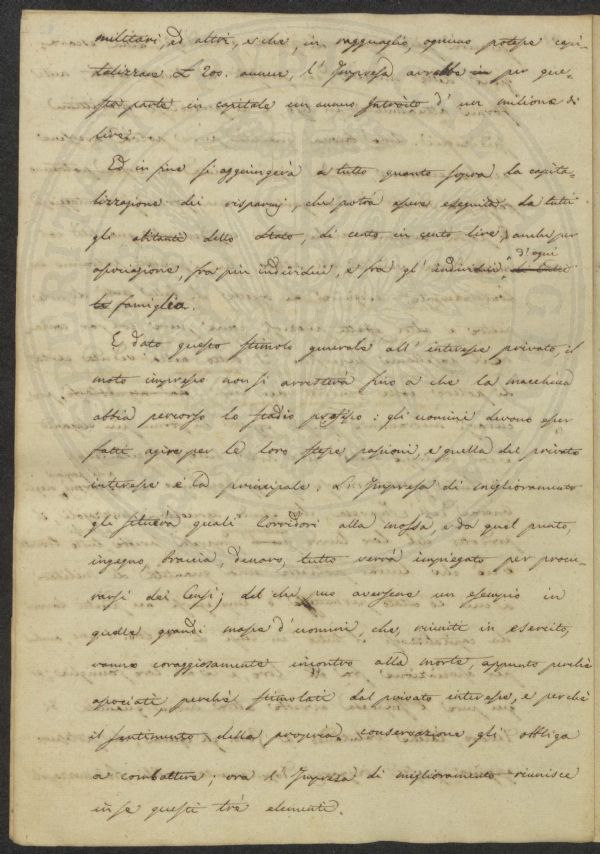 militari, ed altri, e che, in ragguaglio, ognuno potesse capi-
talizzare £ 200. annue, l'Impresa avrebbe in per que-
sta parte in capitale un annuo Introito d'un milione di
lire.
Ed in fine si aggiungerà a tutto quanto sopra la capita-
lizzazione dei risparmj, che potrà essere eseguita da tutti
gli abitanti dello Stato, di cento in cento lire, anche per
associazione, fra più individui, e frà gl'individui di tutta d'ogni
la famiglia.
E dato questo stimolo generale all'interesse privato, il
moto impresso non si arresterà fino a che la macchina
abbia percorso lo stadio prefisso: gli uomini devono esser
fatti agire per le loro stesse passioni, e quella del privato
interesse è la principale. L'Impresa di miglioramento
gli situerà quali Corridori alla mossa, e da quel punto,
ingegno, braccia, denaro, tutto verrà impiegato per procu-
rarsi dei Censi; del chi può aversene un esempio in
quelle grandi masse d'uomini, che, riuniti in esercito,
vanno coraggiosamente incontro alla morte, appunto perchè
associati perchè stimolati dal privato interesse, e perchè
il sentimento della propria conservazione gli obbliga
a combattere; ora l'Impresa di miglioramento riunisce
in se questi trè elementi.